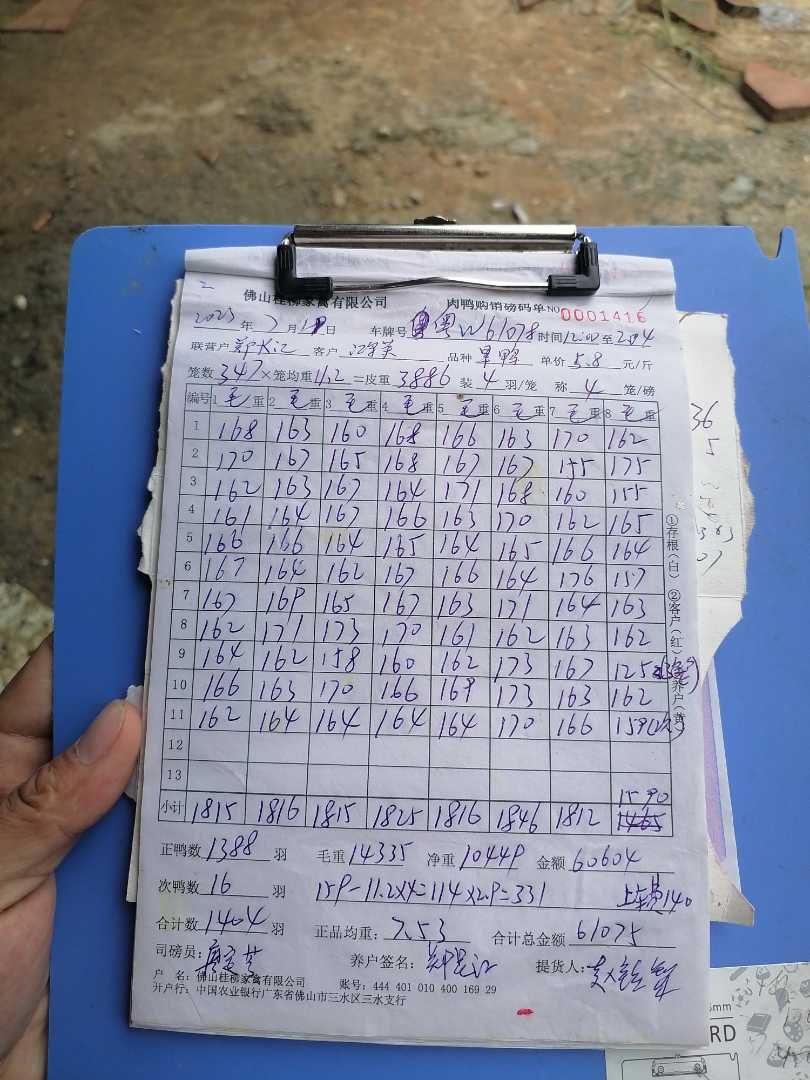 佛山桂柳家禽有限公司 肉鸭购销磅码单 NO 0001416
2023年7月1 日 车牌号 粤W61078 时间12:00至2:04
联营户 郑长江 客户 品种 旱鸭 单价 5.8 元/斤
笼数 347 ×笼均重 11.2 =皮重 3886 装 4 羽/笼 称 4 笼/磅
编号 1 毛重 2 毛重 3 毛重 4 毛重 5 毛重 6 毛重 7 毛重 8 毛重
1 168 163 160 168 166 163 170 162
2 170 167 165 168 167 167 155 175
3 162 163 167 164 171 168 160 155
4 161 164 167 166 163 170 162 165
5 166 166 164 165 164 165 166 164
6 167 164 162 167 166 164 176 157
7 167 169 165 167 163 171 164 163
8 162 171 173 170 161 162 163 162
9 164 162 158 160 162 173 167 125
10 166 163 170 166 169 173 163 162
11 162 164 164 164 164 170 166 159(次)
12
13
1590
小计 1815 1816 1815 1825 1816 1846 1812 1465
正鸭数 1388 羽 毛重 14335 净重 10449 金额 60604
次鸭数 16 羽 159-11.2×4=114×2.9=331 上车费140
合计数 1404 羽 正品均重: 7.53 合计总金额 61075
司磅员: 养户签名: 提货人:
户 名: 佛山桂柳家禽有限公司 账号: 444 401 010 400 169 29
开户行: 中国农业银行广东省佛山市三水区三水支行
①存根(白) ②客户(红) 养户(黄)
36
5
5mm
RD